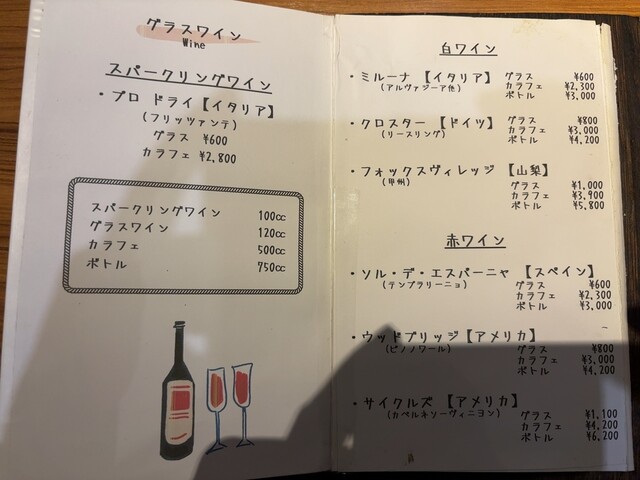 グラスワイン
Wine
スパークリングワイン
・プロ ドライ【イタリア】
(フリッツァンテ)
グラス ¥600
カラフェ ¥2,800
スパークリングワイン 100cc
グラスワイン 120cc
カラフェ 500cc
ボトル 750cc
白ワイン
・ミルーナ 【イタリア】 グラス ¥600
(アルヴァジーア他) カラフェ ¥2,300
ボトル ¥3,000
・クロスター 【ドイツ】 グラス ¥800
(リースリング) カラフェ ¥3,000
ボトル ¥4,200
・フォックスヴィレッジ 【山梨】
(甲州) グラス ¥1,000
カラフェ ¥3,900
ボトル ¥5,800
赤ワイン
・ソル・デ・エスパーニャ 【スペイン】
(テンプラリーニョ) グラス ¥600
カラフェ ¥2,300
ボトル ¥3,000
・ウッドブリッジ【アメリカ】
(ピノノワール) グラス ¥800
カラフェ ¥3,000
ボトル ¥4,200
・サイクルズ 【アメリカ】
(カベルネソーヴィニヨン) グラス ¥1,100
カラフェ ¥4,200
ボトル ¥6,200